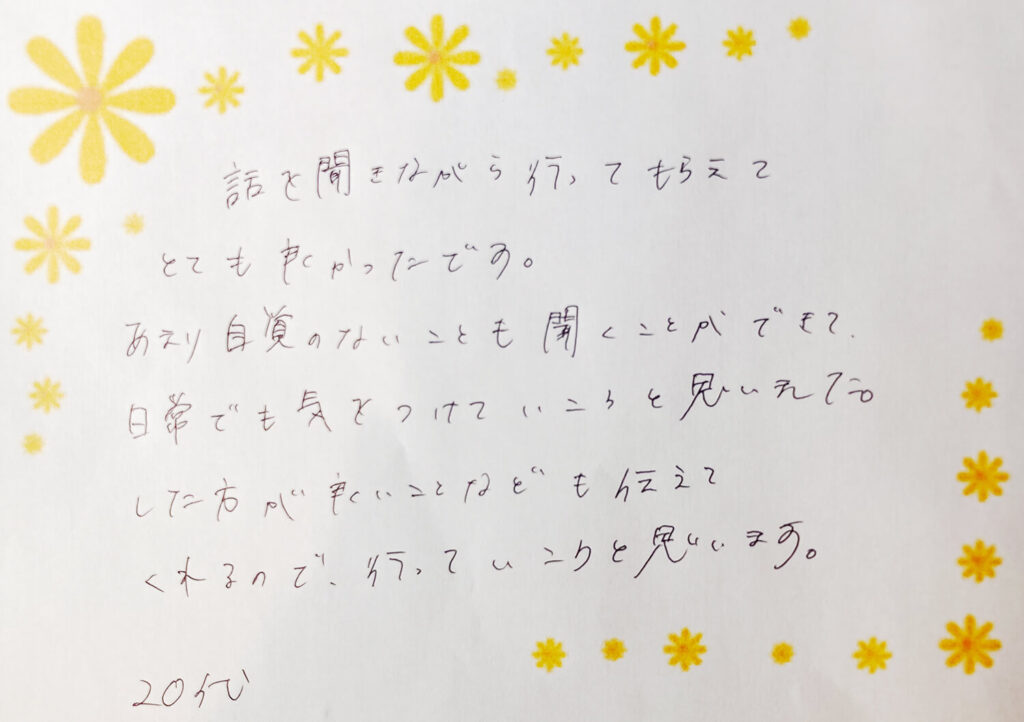 話を聞きながら行ってもらえて
とても良かったです。
あまり自覚のないことも聞くことができて、
日常でも気をつけていこうと思いました
した方が良いことなども伝えて
くれるので、行っていこうと思います。
20代